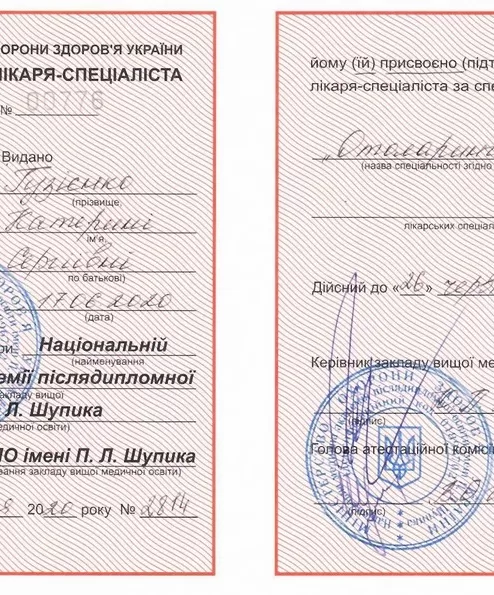 ОРОНИ ЗДОРОВ'Я УКРАЇНИ
ЛІКАРЯ-СПЕЦІАЛІСТА
№ 00776
Видано
Гузієнко
(прізвище,
Катерині
ім'я,
Сергіївні
по батькові)
17.06.2020
(дата)
Національній
(найменування
емії післядипломної
закладу вищої
Л. Шупика
медичної освіти)
О імені П. Л. Шупика
вання закладу вищої медичної освіти)
2020 року № 2814
йому (їй) присвоєно (підт
лікаря-спеціаліста за спе
„Отоларин
(назва спеціальності згідно
лікарських спеціал
Дійсний до «26» черв
Керівник закладу вищої ме
(підпис)
Голова атестаційної комісі
(підпис)
МІНІСТЕРСТВО ОХОРОНИ ЗДОРОВ'Я УКРАЇНИ